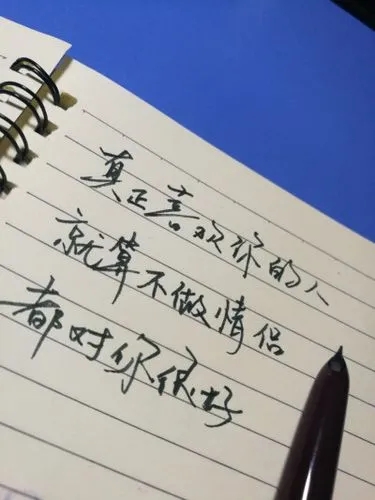 真正喜欢你的人
就算不做情侣
都对你很好